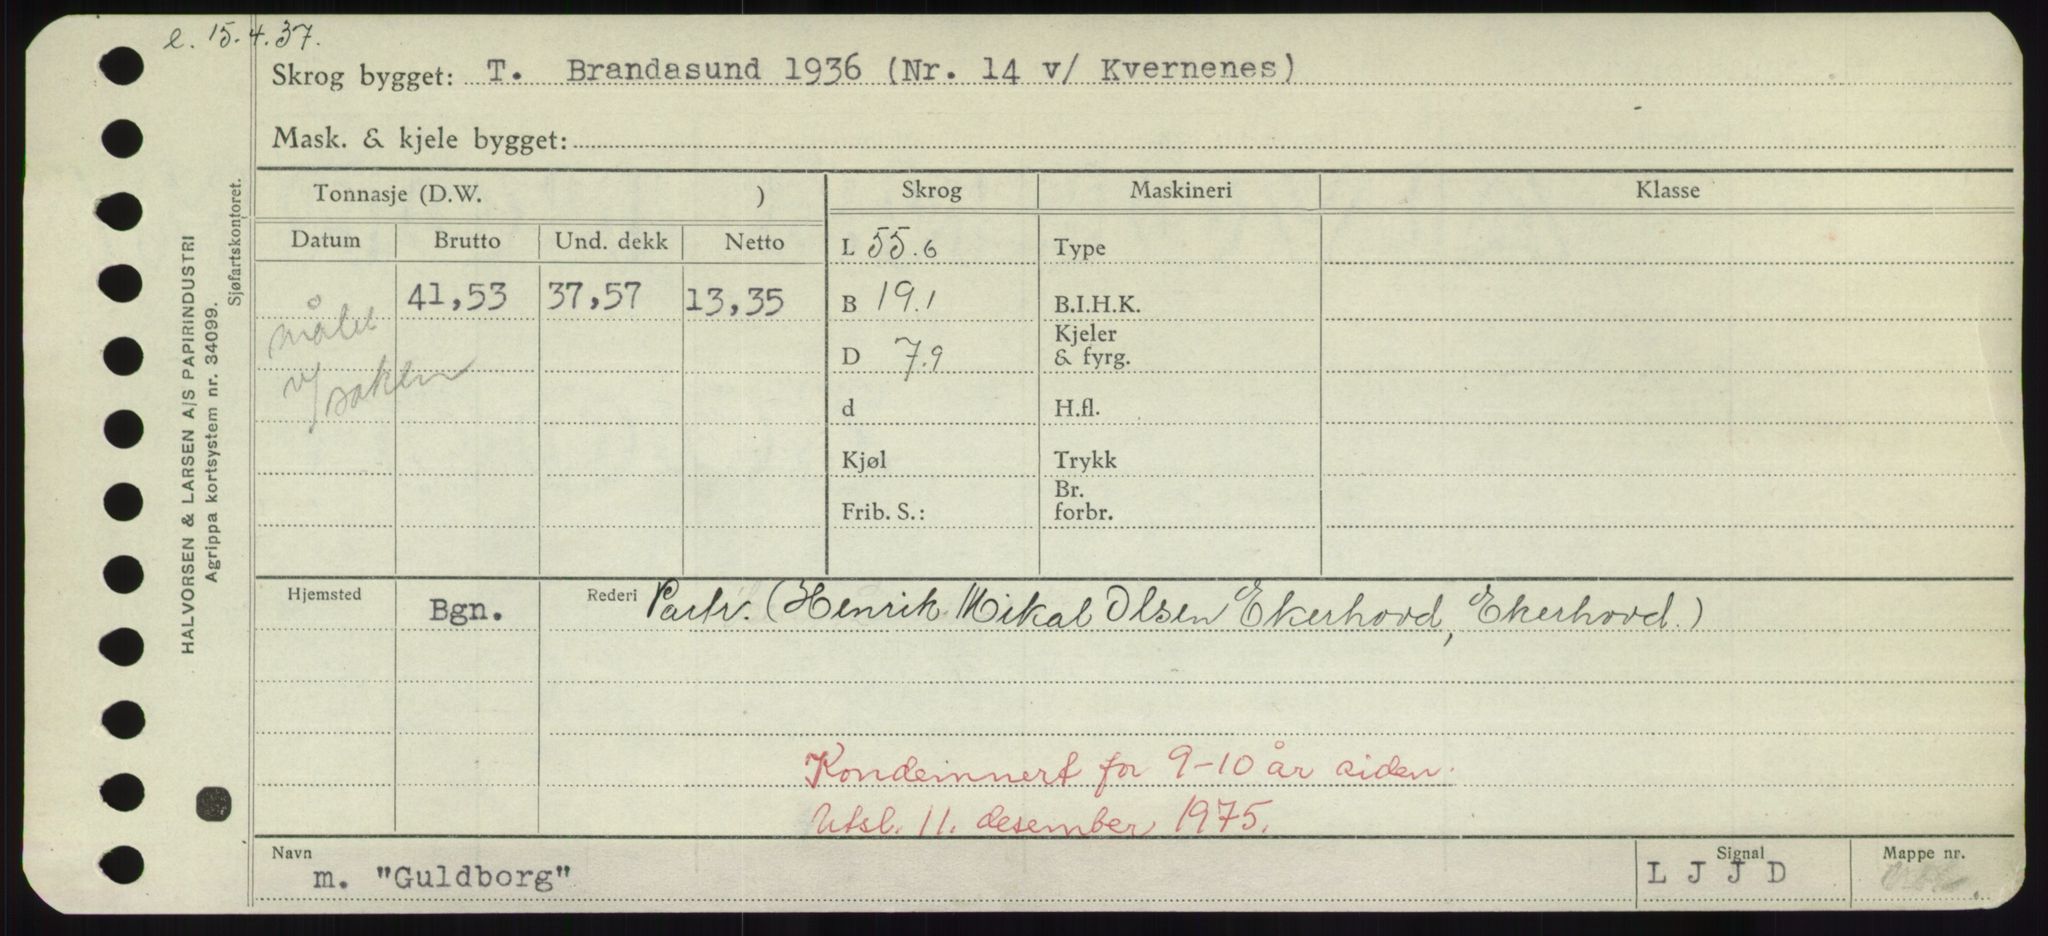 e. 15.4.37.
Skrog bygget: T. Brandasund 1936 (Nr. 14 v/ Kvernenes)
Mask. & kjele bygget:
Tonnasje (D.W. ) Skrog Maskineri Klasse
Datum Brutto Und. dekk Netto L 55.6 Type
41,53 37,57 13,35 B 19.1 B.I.H.K.
målt
v/ saken
D 7.9 Kjeler
& fyrg.
d H.fl.
Kjøl Trykk
Frib. S.: Br.
forbr.
Hjemsted Bgn. Rederi Partr. (Henrik Mikal Olsen Ekerhovd, Ekerhovd.)
Kondemnert for 9-10 år siden.
Utsl. 11. desember 1975.
Navn Signal Mappe nr.
m. "Guldborg" L J J D
HALVORSEN & LARSEN A/S PAPIRINDUSTRI
Agrippa kortsystem nr. 34099.
Sjøfartskontoret.